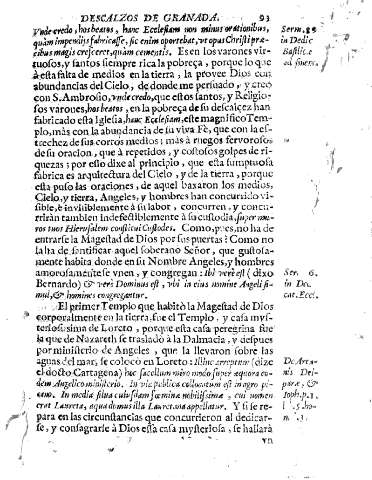 DESCALZOS DE GRANADA. 93
Vnde credo, hos beatos, hanc Ecclesiam non minus orationibus,
quàm impendijs fabricasse, sic enim oportebat, vt opus Christi præ-
cibus magis cresceret, quàm cementis. Es en los varones vir-
tuosos, y santos siempre rica la pobreça, porque lo que
à esta falta de medios en la tierra, la provee Dios con
abundancias del Cielo, de donde me persuado, y creo
con S. Ambrosio, Vnde credo, que estos santos, y Religio-
sos varones, hos beatos, en la pobreza de su descalçez han
fabricado esta Iglesia, hanc Ecclesiam, este magnifico Tem-
plo, màs con la abundancia de su viva Fè, que con la es-
trechez de sus cortos medios: màs à ruegos fervorosos
de su oracion, que à repetidos, y costosos golpes de ri-
quezas; por esso dixe al principio, que esta sumptuosa
fabrica es arquitectura del Cielo, y de la tierra, porque
esta puso las oraciones, de aquel baxaron los medios,
Cielo, y tierra, Angeles, y hombres han concurrido visi-
ble, è invisiblemente à su labor, concurren, y concu-
rriràn tambien indefectiblemente à su custodia, super mu-
ros tuos Hierusalem constitui Custodes. Como, pues, no ha de
entrarse la Magestad de Dios por sus puertas? Como no
la ha de santificar aquel soberano Señor, que gustosa-
mente habita donde en su Nombre Angeles, y hombres
amorosamente se vnen, y congregan: Ibi verè est (dixo
Bernardo) & verè Dominus est, vbi in eius nomine Angeli si-
mul, & homines congregantur.
El primer Templo que habitò la Magestad de Dios
corporalmente en la tierra, fue el Templo, y casa mys-
teriosissima de Loreto, porque esta casa peregrina fue
la que de Nazareth se trasladò à la Dalmacia, y despues
por ministerio de Angeles, que la llevaron sobre las
aguas del mar, se colocò en Loreto: Illuc arreptum (dize
el docto Cartagena) hoc sacellum miro modo super æquora eo-
dem Angelico ministerio. In via publica collocatum est in agro pi-
ceno. In media silva cuiusdam fœminæ nobilissimæ, cui nomen
erat Laureta, à qua domus illa Lauretana appellatur. Y si se re-
para en las circunstancias que concurrieron al dedicar-
se, y consagrarse à Dios esta casa mysteriosa, se hallarà
vn
Serm. 89
in Dedic
Basilicæ
Ser. 6.
in Dec.
cat. Eccl.
De Arca-
nis Dei-
paræ, &
Ioph. p. 1.